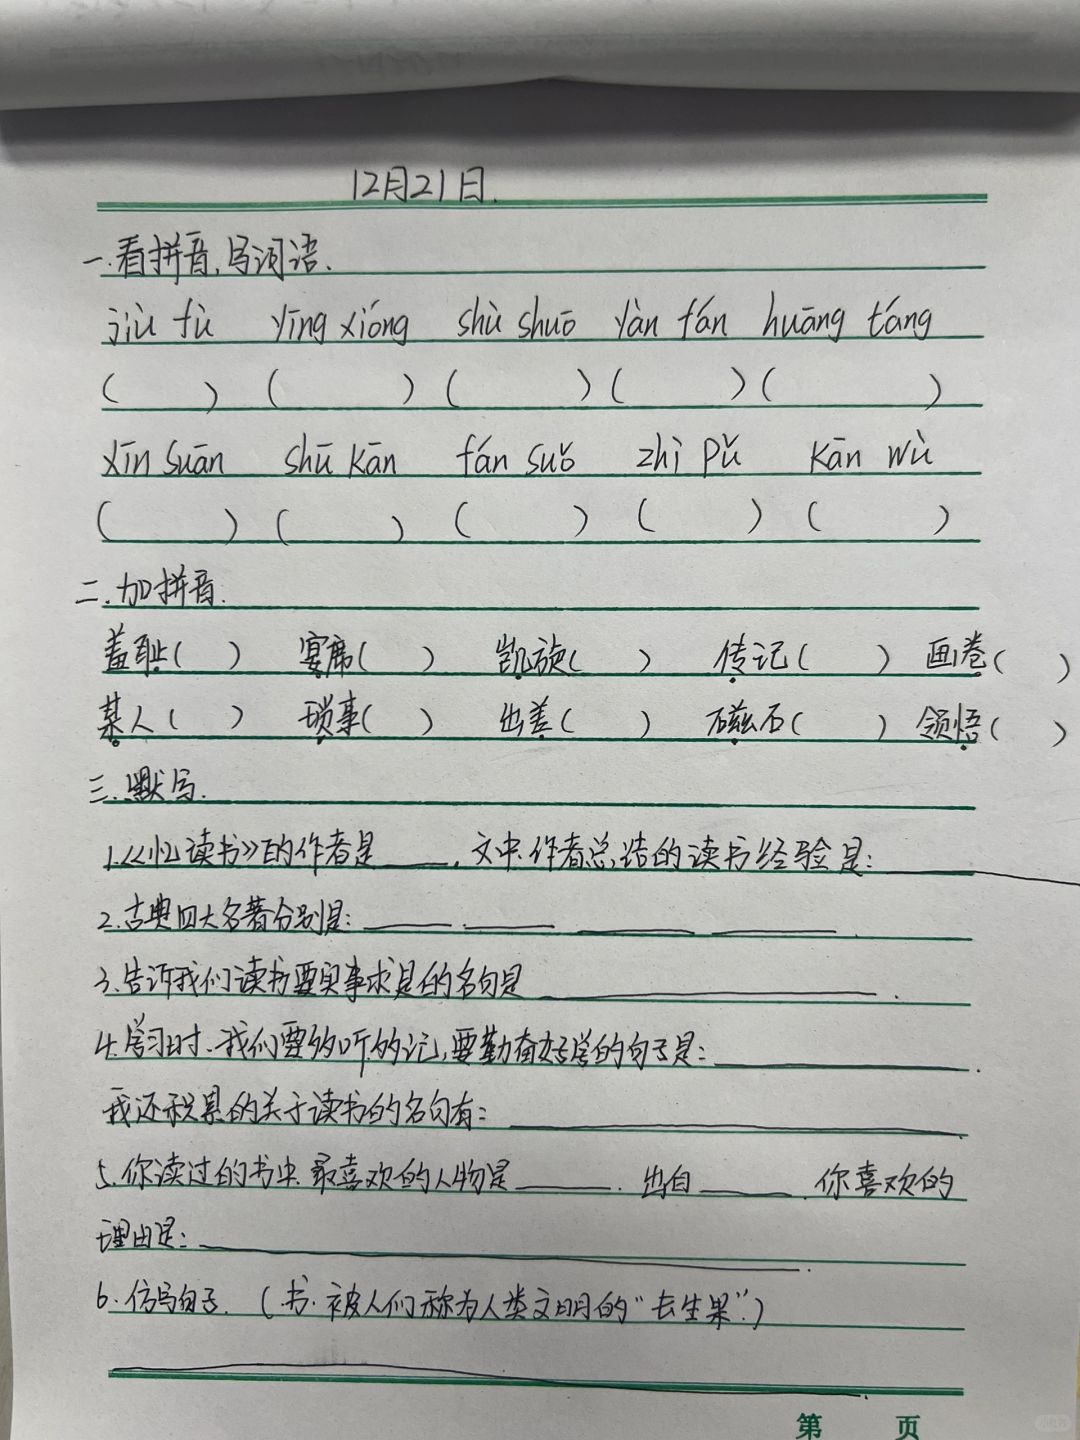 12月21日.
一.看拼音,写词语.
jiù fù yīng xióng shù shuō yàn fán huāng táng
( ) ( ) ( ) ( ) ( )
xīn suān shū kān fán suǒ zhì pǔ kān wù
( ) ( ) ( ) ( ) ( )
二.加拼音.
羞耻( ) 宴席( ) 凯旋( ) 传记( ) 画卷( )
某人( ) 琐事( ) 出差( ) 磁石( ) 领悟( )
三.默写.
1.《忆读书》的作者是____,文中,作者总结的读书经验是:____
2.古典四大名著分别是:____ ____ ____ ____.
3.告诉我们读书要实事求是的名句是____.
4.学习时、我们要多听多记,要勤奋好学的句子是:____.
我还积累的关于读书的名句有:____
5.你读过的书中,最喜欢的人物是____.出自____.你喜欢的
理由是:____.
6.仿写句子.(书.被人们称为人类文明的"长生果".)
____.
第 页